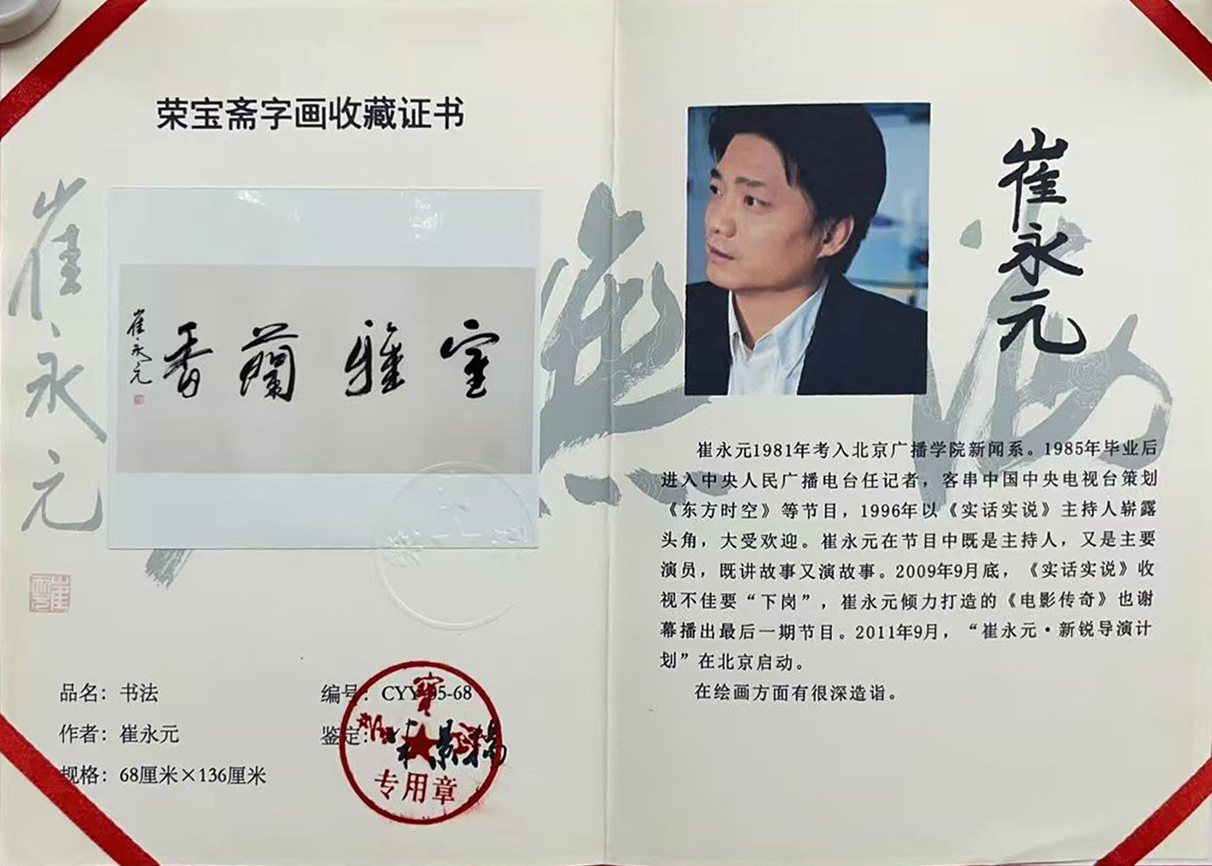 荣宝斋字画收藏证书
崔永元
室雅蘭香
崔永元
品名：书法
编号：CYY-05-68
作者：崔永元
鉴定：
规格：68厘米×136厘米
专用章
崔永元
崔永元1981年考入北京广播学院新闻系。1985年毕业后
进入中央人民广播电台任记者，客串中国中央电视台策划
《东方时空》等节目，1996年以《实话实说》主持人崭露
头角，大受欢迎。崔永元在节目中既是主持人，又是主要
演员，既讲故事又演故事。2009年9月底，《实话实说》收
视不佳要“下岗”，崔永元倾力打造的《电影传奇》也谢
幕播出最后一期节目。2011年9月，“崔永元·新锐导演计
划”在北京启动。
在绘画方面有很深造诣。